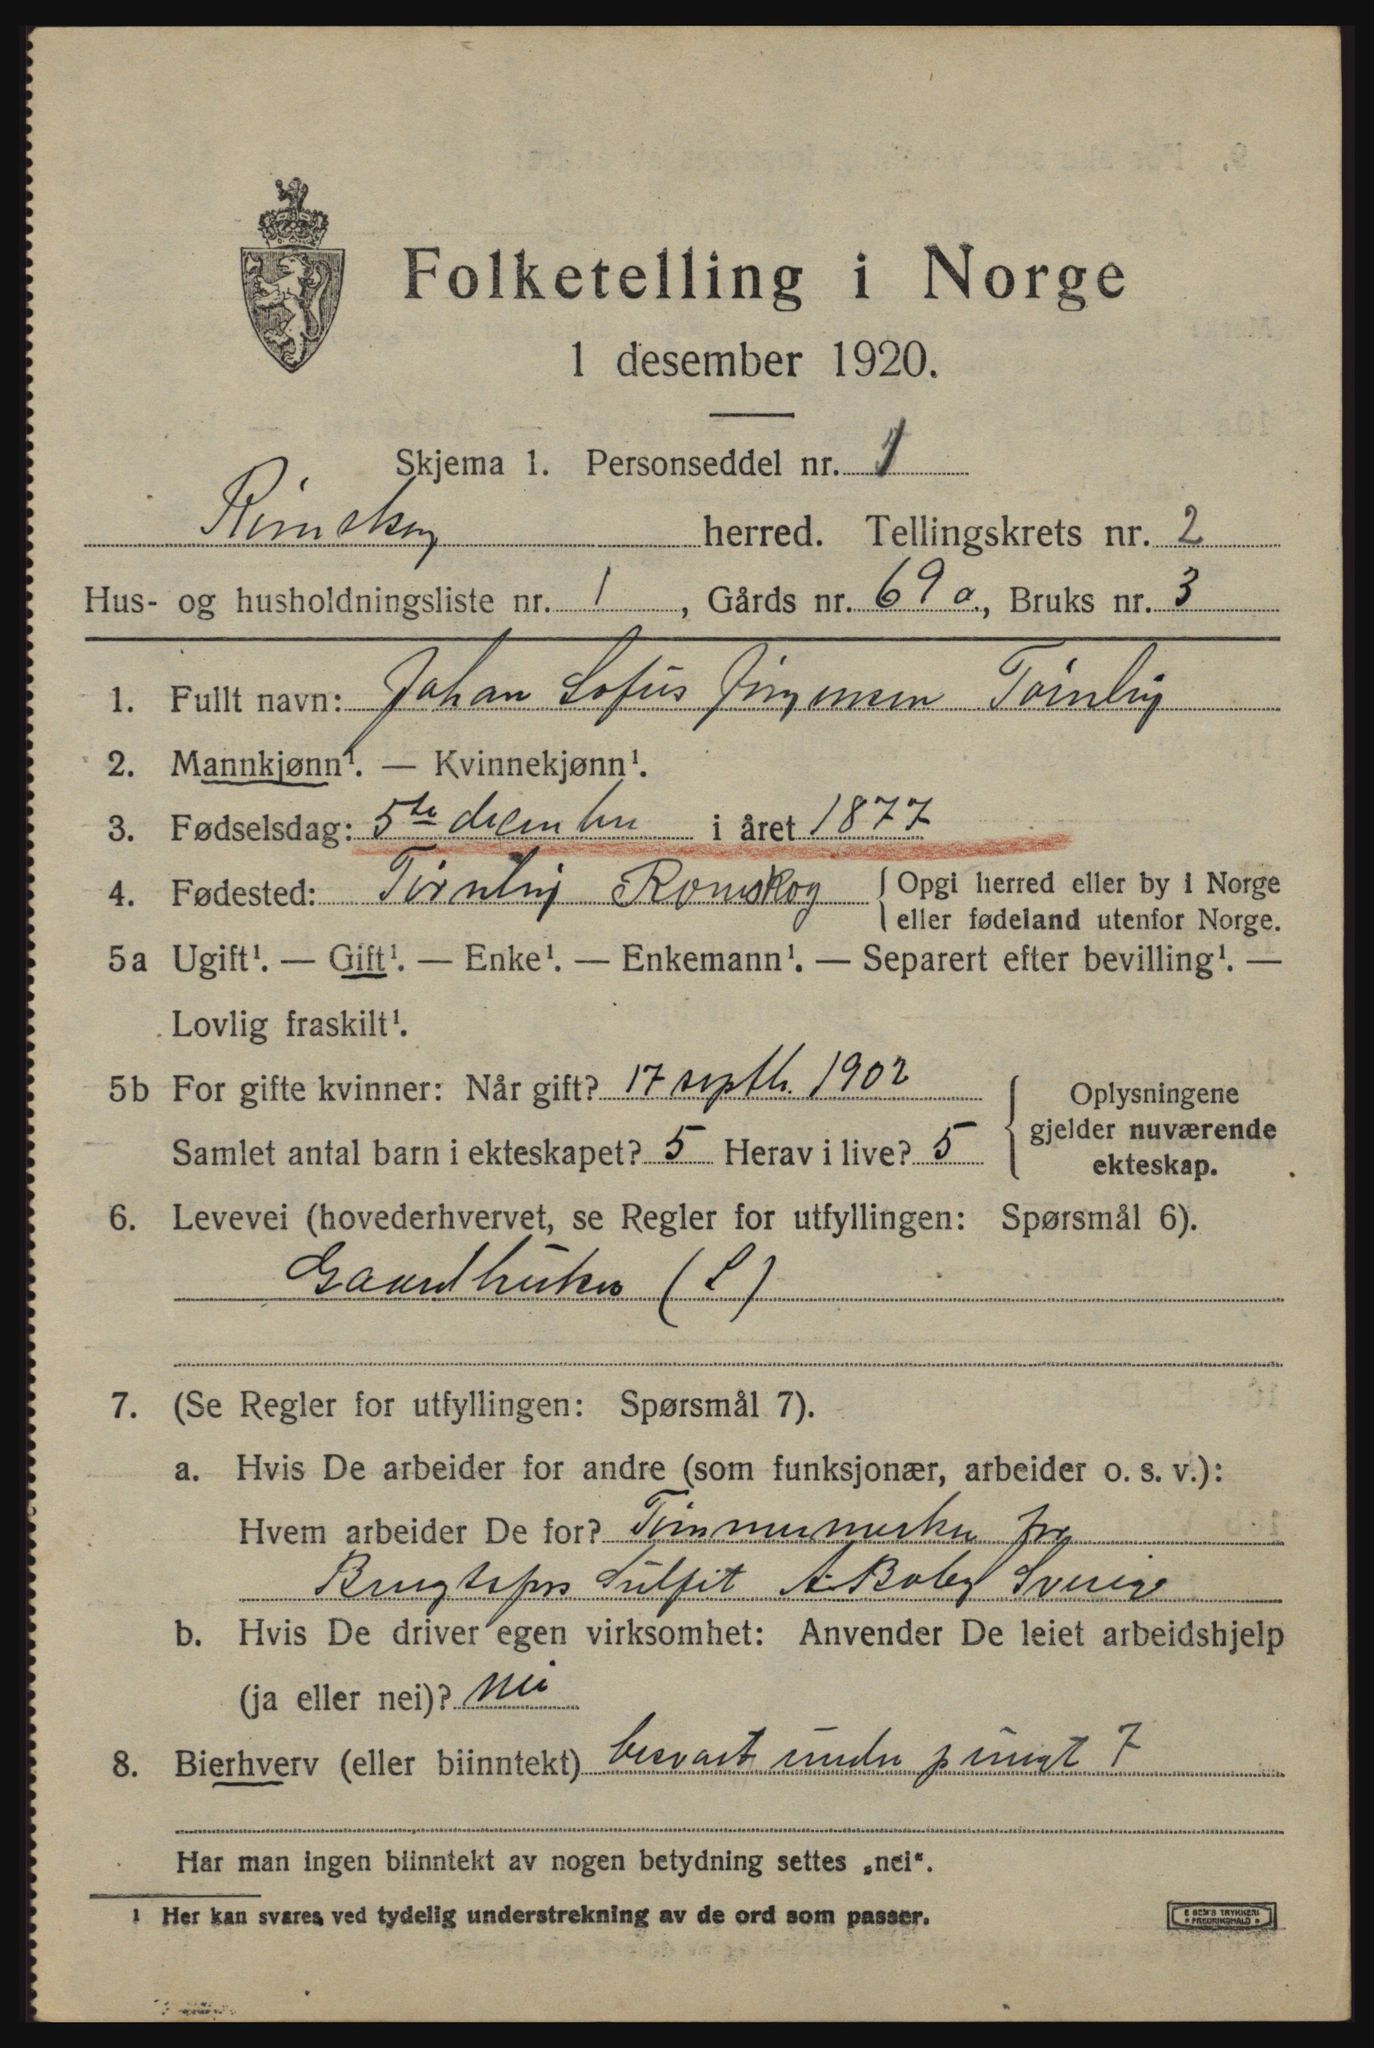 Folketelling i Norge
1 desember 1920.
Skjema 1. Personseddel nr. 1
Rømskog herred. Tellingskrets nr. 2
Hus- og husholdningsliste nr. 1, Gårds nr. 69 a., Bruks nr. 3
1. Fullt navn: Johan Sofus Jørgensen Tørnby
2. Mannkjønn¹. — Kvinnekjønn¹.
3. Fødselsdag: 5te december i året 1877
4. Fødested: Tørnby Rømskog { Opgi herred eller by i Norge
eller fødeland utenfor Norge.
5a Ugift¹. — Gift¹. — Enke¹. — Enkemann¹. — Separert efter bevilling¹. —
Lovlig fraskilt¹.
5b For gifte kvinner: Når gift? 17 septb. 1902
Samlet antal barn i ekteskapet? 5 Herav i live? 5
Oplysningene
gjelder nuværende
ekteskap.
6. Levevei (hovederhvervet, se Regler for utfyllingen: Spørsmål 6).
Gaardbruker (S)
7. (Se Regler for utfyllingen: Spørsmål 7).
a. Hvis De arbeider for andre (som funksjonær, arbeider o. s. v.):
Hvem arbeider De for? Tømmermerker for
Sulfit A Sverige
b. Hvis De driver egen virksomhet: Anvender De leiet arbeidshjelp
(ja eller nei)? nei
8. Bierhverv (eller biinntekt) besvart under pungt 7
Har man ingen biinntekt av nogen betydning settes „nei“.
1 Her kan svares ved tydelig understrekning av de ord som passer.
E SEM'S TRYKKERI
FREDRIKSHALD